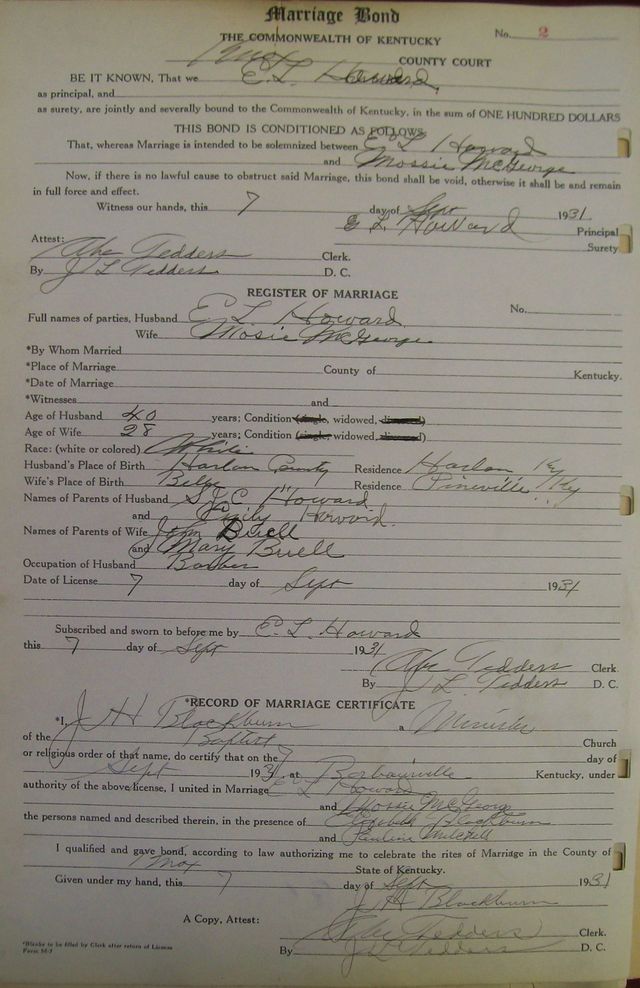 Marriage Bond
No. 2
THE COMMONWEALTH OF KENTUCKY
Knox COUNTY COURT
BE IT KNOWN, That we E. L. Howard,
as principal, and
as surety, are jointly and severally bound to the Commonwealth of Kentucky, in the sum of ONE HUNDRED DOLLARS
THIS BOND IS CONDITIONED AS FOLLOWS
That, whereas Marriage is intended to be solemnized between E L Howard
and Mossie McGeorge
Now, if there is no lawful cause to obstruct said Marriage, this bond shall be void, otherwise it shall and remain
in full force and effect.
Witness our hands, this 7 day of Sept 1931.
E L Howard Principal
Surety
Attest:
Abe Tedders Clerk.
By J L Tedders D. C.
REGISTER OF MARRIAGE
Full names of parties, Husband E L Howard No.
Wife Mosie McGeorge
*By Whom Married
*Place of Marriage County of Kentucky.
*Date of Marriage
*Witnesses and
Age of Husband 40 years; Condition (single, widowed, divorced)
Age of Wife 28 years; Condition (single, widowed, divorced)
Race: (white or colored) White
Husband's Place of Birth Harlan County Residence Harlan Ky
Wife's Place of Birth Residence Pineville Ky
Names of Parents of Husband Howard
and Emily Howard.
Names of Parents of Wife John Buell
and Mary Buell
Occupation of Husband Barber
Date of License 7 day of Sept 1931
Subscribed and sworn to before me by E. L. Howard
this 7 day of Sept 1931
Abe Tedders Clerk.
By J L Tedders D. C.
*RECORD OF MARRIAGE CERTIFICATE
*I, J H Blackburn a Minister
of the Baptist Church
or religious order of that name, do certify that on the 7 day of
Sept 1931, at Barbourville Kentucky, under
authority of the above license, I united in Marriage E L Howard
and Mossie McGeorge
the persons named and described therein, in the presence of Elizabeth Blackburn
and Pauline Mitchell
I qualified and gave bond, according to law authorizing me to celebrate the rites of Marriage in the County of
Knox State of Kentucky.
Given under my hand, this 7 day of Sept 1931
J H Blackburn
A Copy, Attest: Abe Tedders Clerk.
By J L Tedders D. C.
*Blanks to be filled by Clerk after return of License